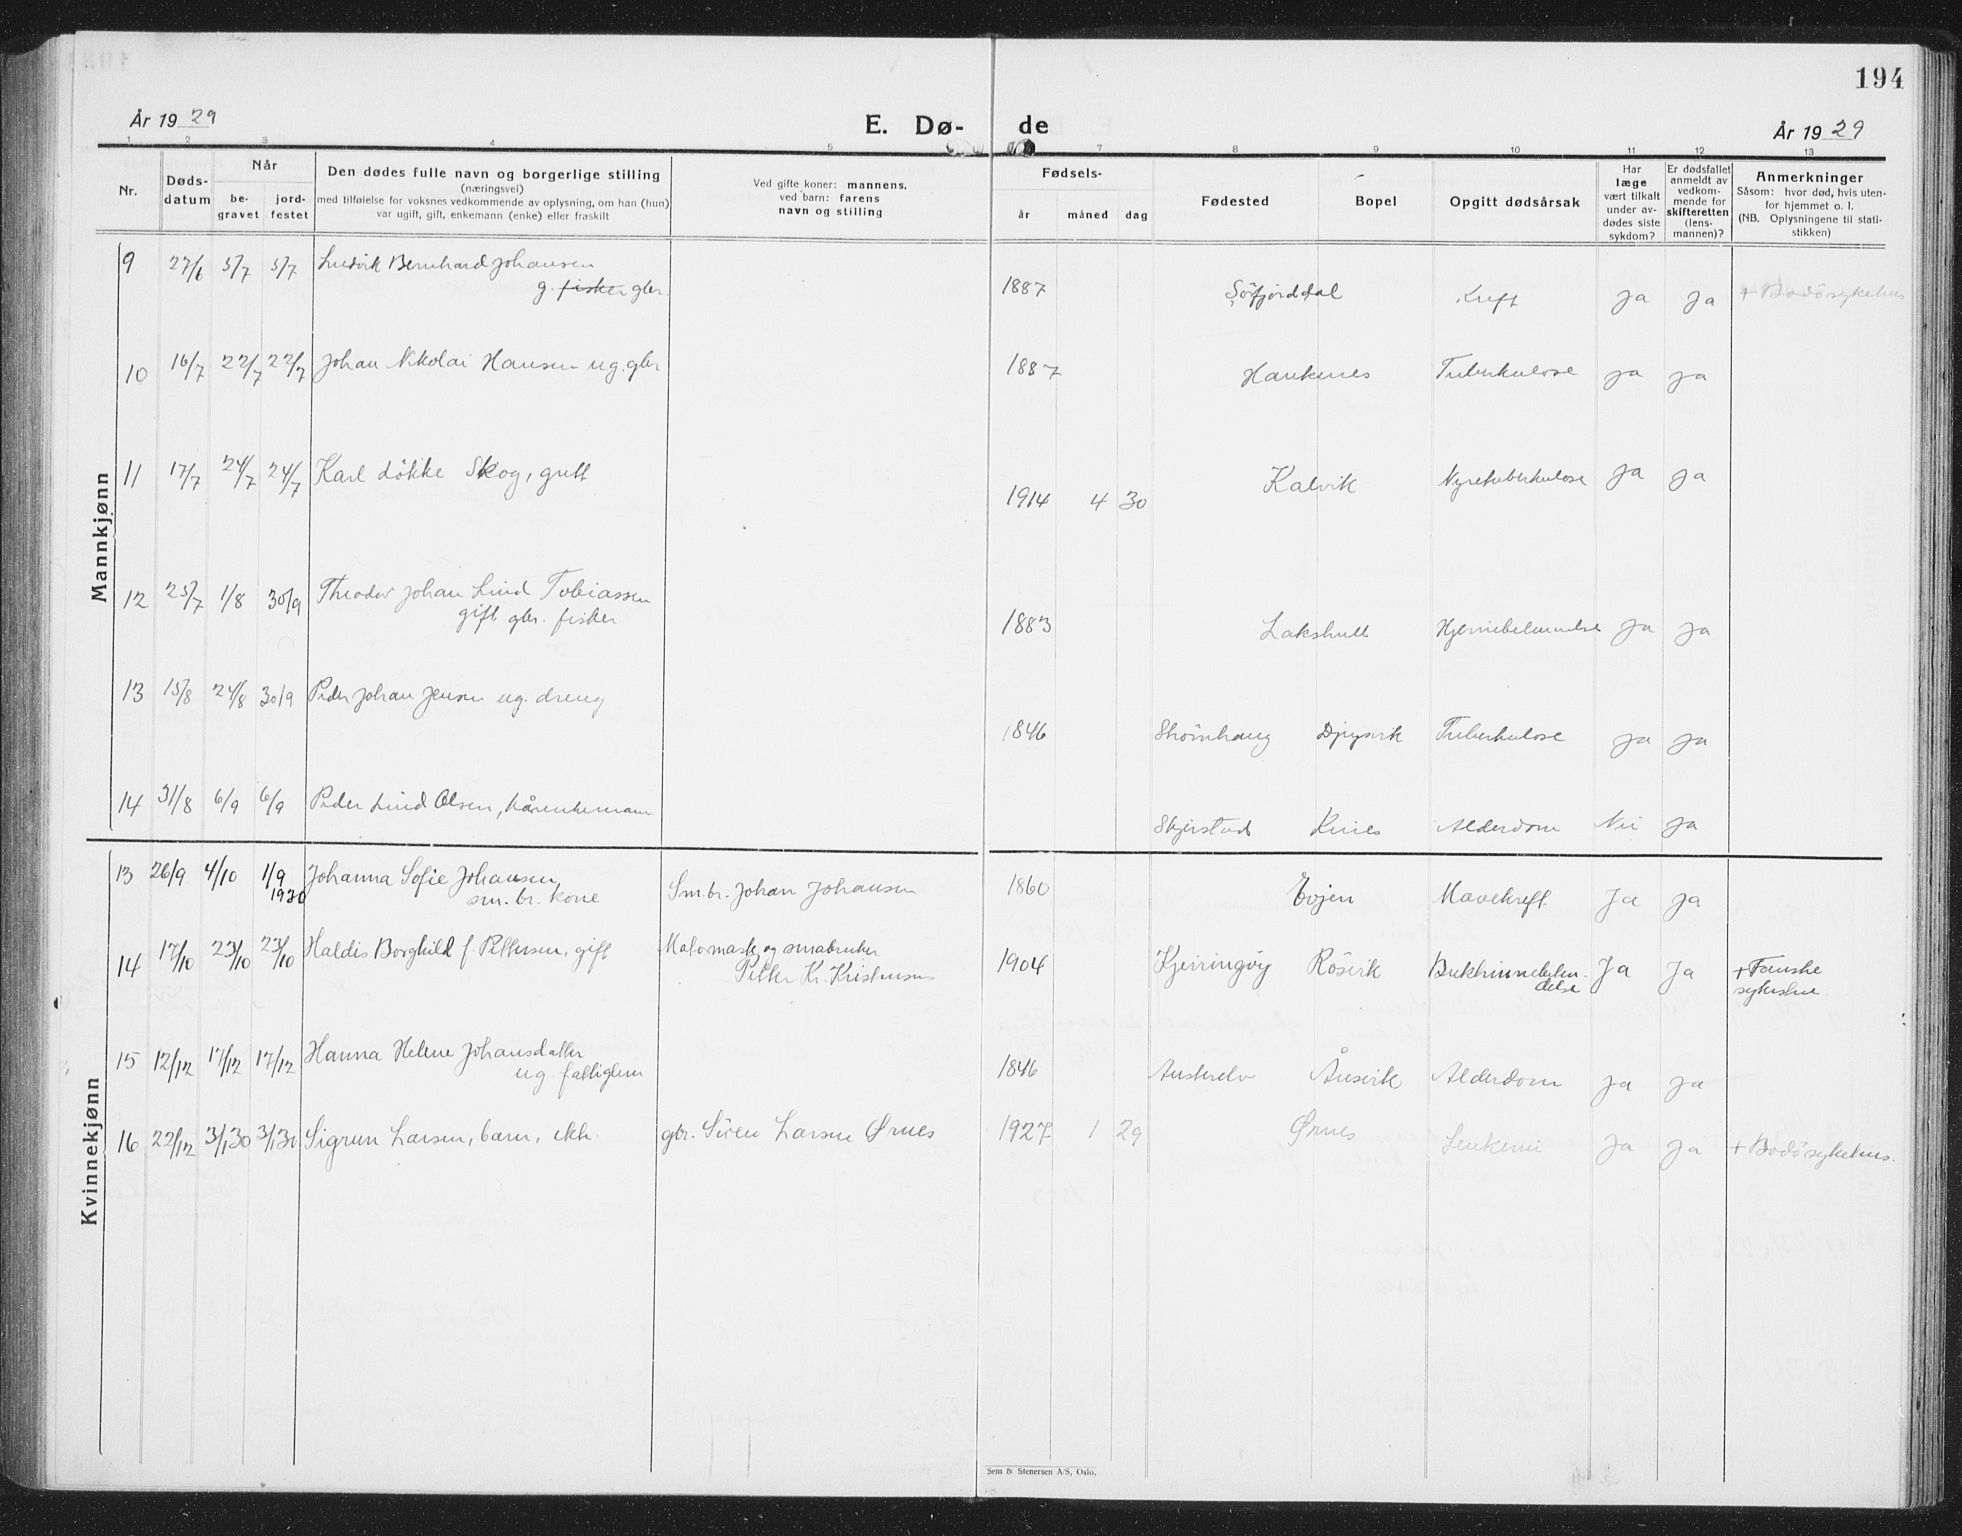 194
År 1929
E. Dø-
de
År 1929
1 2 3 4 5 7 8 9 10 11 12 13
Nr.
Døds-
datum
Når
be-
gravet
jord-
festet
Den dødes fulle navn og borgerlige stilling
(næringsvei)
med tilføielse for voksnes vedkommende av oplysning, om han (hun)
var ugift, gift, enkemann (enke) eller fraskilt
Ved gifte koner: mannens,
ved barn: farens
navn og stilling
Fødsels-
år måned dag
Fødested
Bopel
Opgitt dødsårsak
Har
læge
vært tilkalt
under av-
dødes siste
sykdom?
Er dødsfallet
anmeldt av
vedkom-
mende for
skifteretten
(lens-
mannen)?
Anmerkninger
Såsom: hvor død, hvis uten-
for hjemmet o. l.
(NB. Oplysningene til stati-
stikken)
Mannkjønn
9 27/6 5/7 5/7 Ludvik Bernhard Johansen
g. fisker gbr. 1887 Sörfjorddal Kreft Ja Ja + Bodö sykehus
10 16/7 22/7 22/7 Johan Nikolai Hansen ug. gbr 1887 Haukenes Tuberkulose Ja Ja
11 17/7 24/7 24/7 Karl Lökke Skog, gutt 1914 4 30 Kalvik Nyretuberkulose Ja Ja
12 25/7 1/8 30/9 Theodor Johan Lind Tobiassen
gift gbr. fisker 1883 Lakshull Hjernebetennelse Ja Ja
13 15/8 24/8 30/9 Peder Johan Jensen ug. dreng 1846 Djupvik Tuberkulose Ja Ja
14 31/8 6/9 6/9 Peder Lind Olsen, kårenkemann Skjerstad Knes Alderdom Nei Ja
Kvinnekjønn
13 26/9 4/10 1/9 1930 Johanna Sofie Johansen
sm. br. kone Sm.br. Johan Johansen 1860 Evjen Mavekreft Ja Ja
14 17/10 23/10 23/10 Haldis Borghild f. Pettersen, gift og småbruker
Petter Kr. Kristensen 1904 Kjerringöy Rösvik Bukhinnebeten-
delse Ja Ja + Fauske
sykestue
15 12/12 17/12 17/12 Hanna Helene Johansdatter
ug. fattiglem 1846 Austerelv Åusvik Alderdom Ja Ja
16 22/12 3/1 30 3/1 30 Sigrun Larsen, barn, ekh. gbr. Sören Larsen Ørnes 1927 1 29 Ørnes Leukemi Ja Ja + Bodö sykehus.
Sem & Stenersen A/S, Oslo.